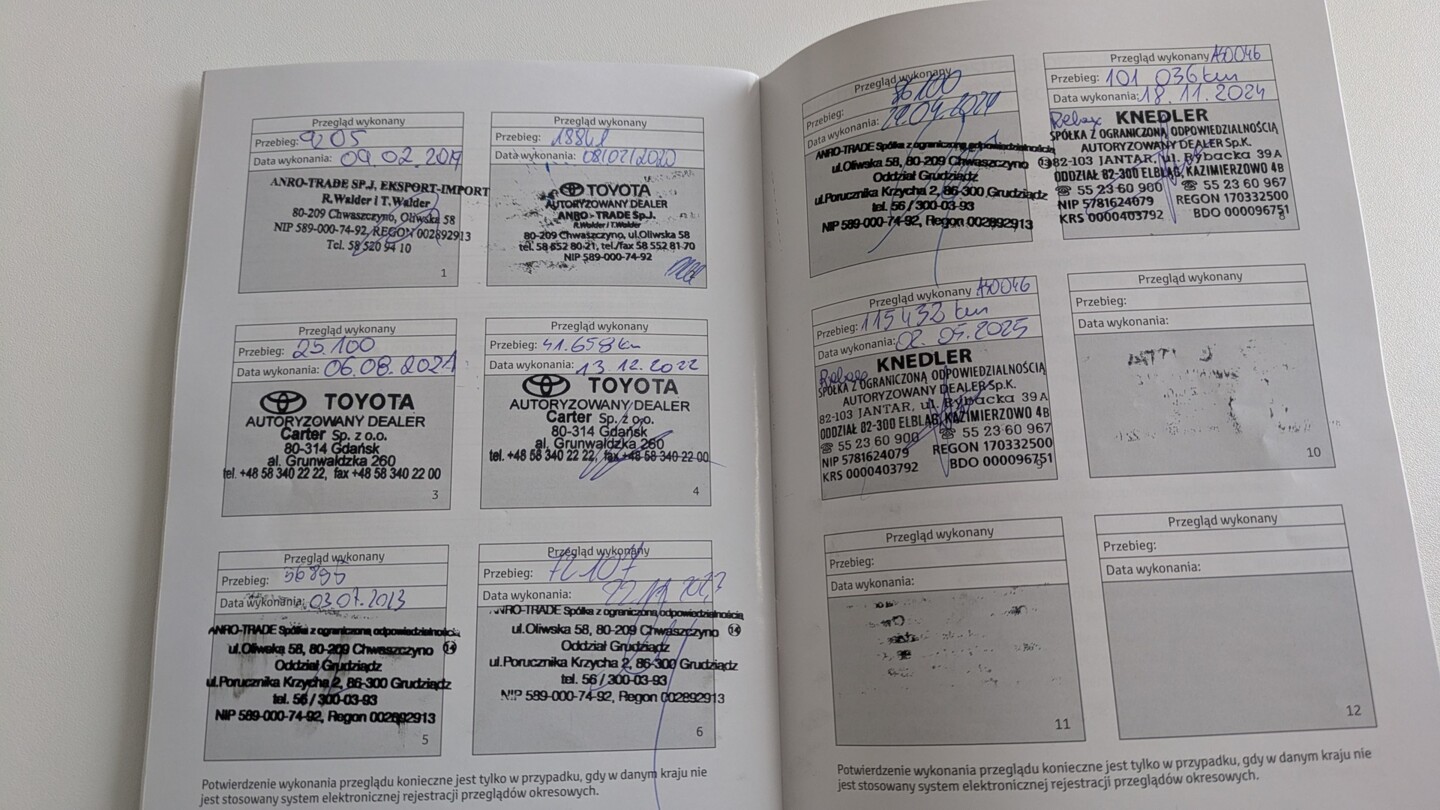 Przegląd wykonany
Przebieg: 9205
Data wykonania: 09.02.2019
ANRO-TRADE SP.J. EKSPORT-IMPORT
R.Walder i T.Walder
80-209 Chwaszczyno, Oliwska 58
NIP 589-000-74-92, REGON 002892913
Tel. 58 520 94 10
1
Przegląd wykonany
Przebieg: 18841
Data wykonania: 08/02/2020
TOYOTA
AUTORYZOWANY DEALER
ANRO - TRADE Sp.J.
R.Walder i T.Walder
80-209 Chwaszczyno, ul.Oliwska 58
tel. 58 552 80-21, tel./fax 58 552 81-70
NIP 589-000-74-92
Przegląd wykonany
Przebieg: 25.100
Data wykonania: 06.08.2021
TOYOTA
AUTORYZOWANY DEALER
Carter Sp. z o.o.
80-314 Gdańsk
al. Grunwaldzka 260
tel. +48 58 340 22 22, fax +48 58 340 22 00
3
Przegląd wykonany
Przebieg: 41.658 km
Data wykonania: 13.12.2022
TOYOTA
AUTORYZOWANY DEALER
Carter Sp. z o.o.
80-314 Gdańsk
al. Grunwaldzka 260
tel. +48 58 340 22 22, fax +48 58 340 22 00
4
Przegląd wykonany
Przebieg: 56895
Data wykonania: 03.07.2023
ANRO-TRADE Spółka z ograniczoną odpowiedzialnością
ul.Oliwska 58, 80-209 Chwaszczyno 14
Oddział Grudziądz
ul.Porucznika Krzycha 2, 86-300 Grudziądz
tel. 56 / 300-03-93
NIP 589-000-74-92, Regon 002892913
5
Przegląd wykonany
Przebieg: 72107
Data wykonania: 22.11.2023
ANRO-TRADE Spółka z ograniczoną odpowiedzialnością
ul.Oliwska 58, 80-209 Chwaszczyno 14
Oddział Grudziądz
ul.Porucznika Krzycha 2, 86-300 Grudziądz
tel. 56 / 300-03-93
NIP 589-000-74-92, Regon 002892913
6
Potwierdzenie wykonania przeglądu konieczne jest tylko w przypadku, gdy w danym kraju nie
jest stosowany system elektronicznej rejestracji przeglądów okresowych.
Przegląd wykonany
Przebieg: 86100
Data wykonania: 22.04.2024
ANRO-TRADE Spółka z ograniczoną odpowiedzialnością
ul.Oliwska 58, 80-209 Chwaszczyno 13
Oddział Grudziądz
ul.Porucznika Krzycha 2, 86-300 Grudziądz
tel. 56 / 300-03-93
NIP 589-000-74-92, Regon 002892913
Przegląd wykonany ASO046
Przebieg: 101 036 km
Data wykonania: 18.11.2024
KNEDLER
SPÓŁKA Z OGRANICZONĄ ODPOWIEDZIALNOŚCIĄ
AUTORYZOWANY DEALER Sp.K.
82-103 JANTAR, ul. Rybacka 39 A
ODDZIAŁ 82-300 ELBLĄG, KAZIMIERZOWO 4B
☎ 55 23 60 900 ☏ 55 23 60 967
NIP 5781624079 REGON 170332500
KRS 0000403792 BDO 000096751
Przegląd wykonany ASO046
Przebieg: 115432 km
Data wykonania: 02.05.2025
KNEDLER
SPÓŁKA Z OGRANICZONĄ ODPOWIEDZIALNOŚCIĄ
AUTORYZOWANY DEALER Sp.K.
82-103 JANTAR, ul. Rybacka 39 A
ODDZIAŁ 82-300 ELBLĄG, KAZIMIERZOWO 4B
☎ 55 23 60 900 ☏ 55 23 60 967
NIP 5781624079 REGON 170332500
KRS 0000403792 BDO 000096751
9
Przegląd wykonany
Przebieg:
Data wykonania:
10
Przegląd wykonany
Przebieg:
Data wykonania:
11
Przegląd wykonany
Przebieg:
Data wykonania:
12
Potwierdzenie wykonania przeglądu konieczne jest tylko w przypadku, gdy w danym kraju nie
jest stosowany system elektronicznej rejestracji przeglądów okresowych.